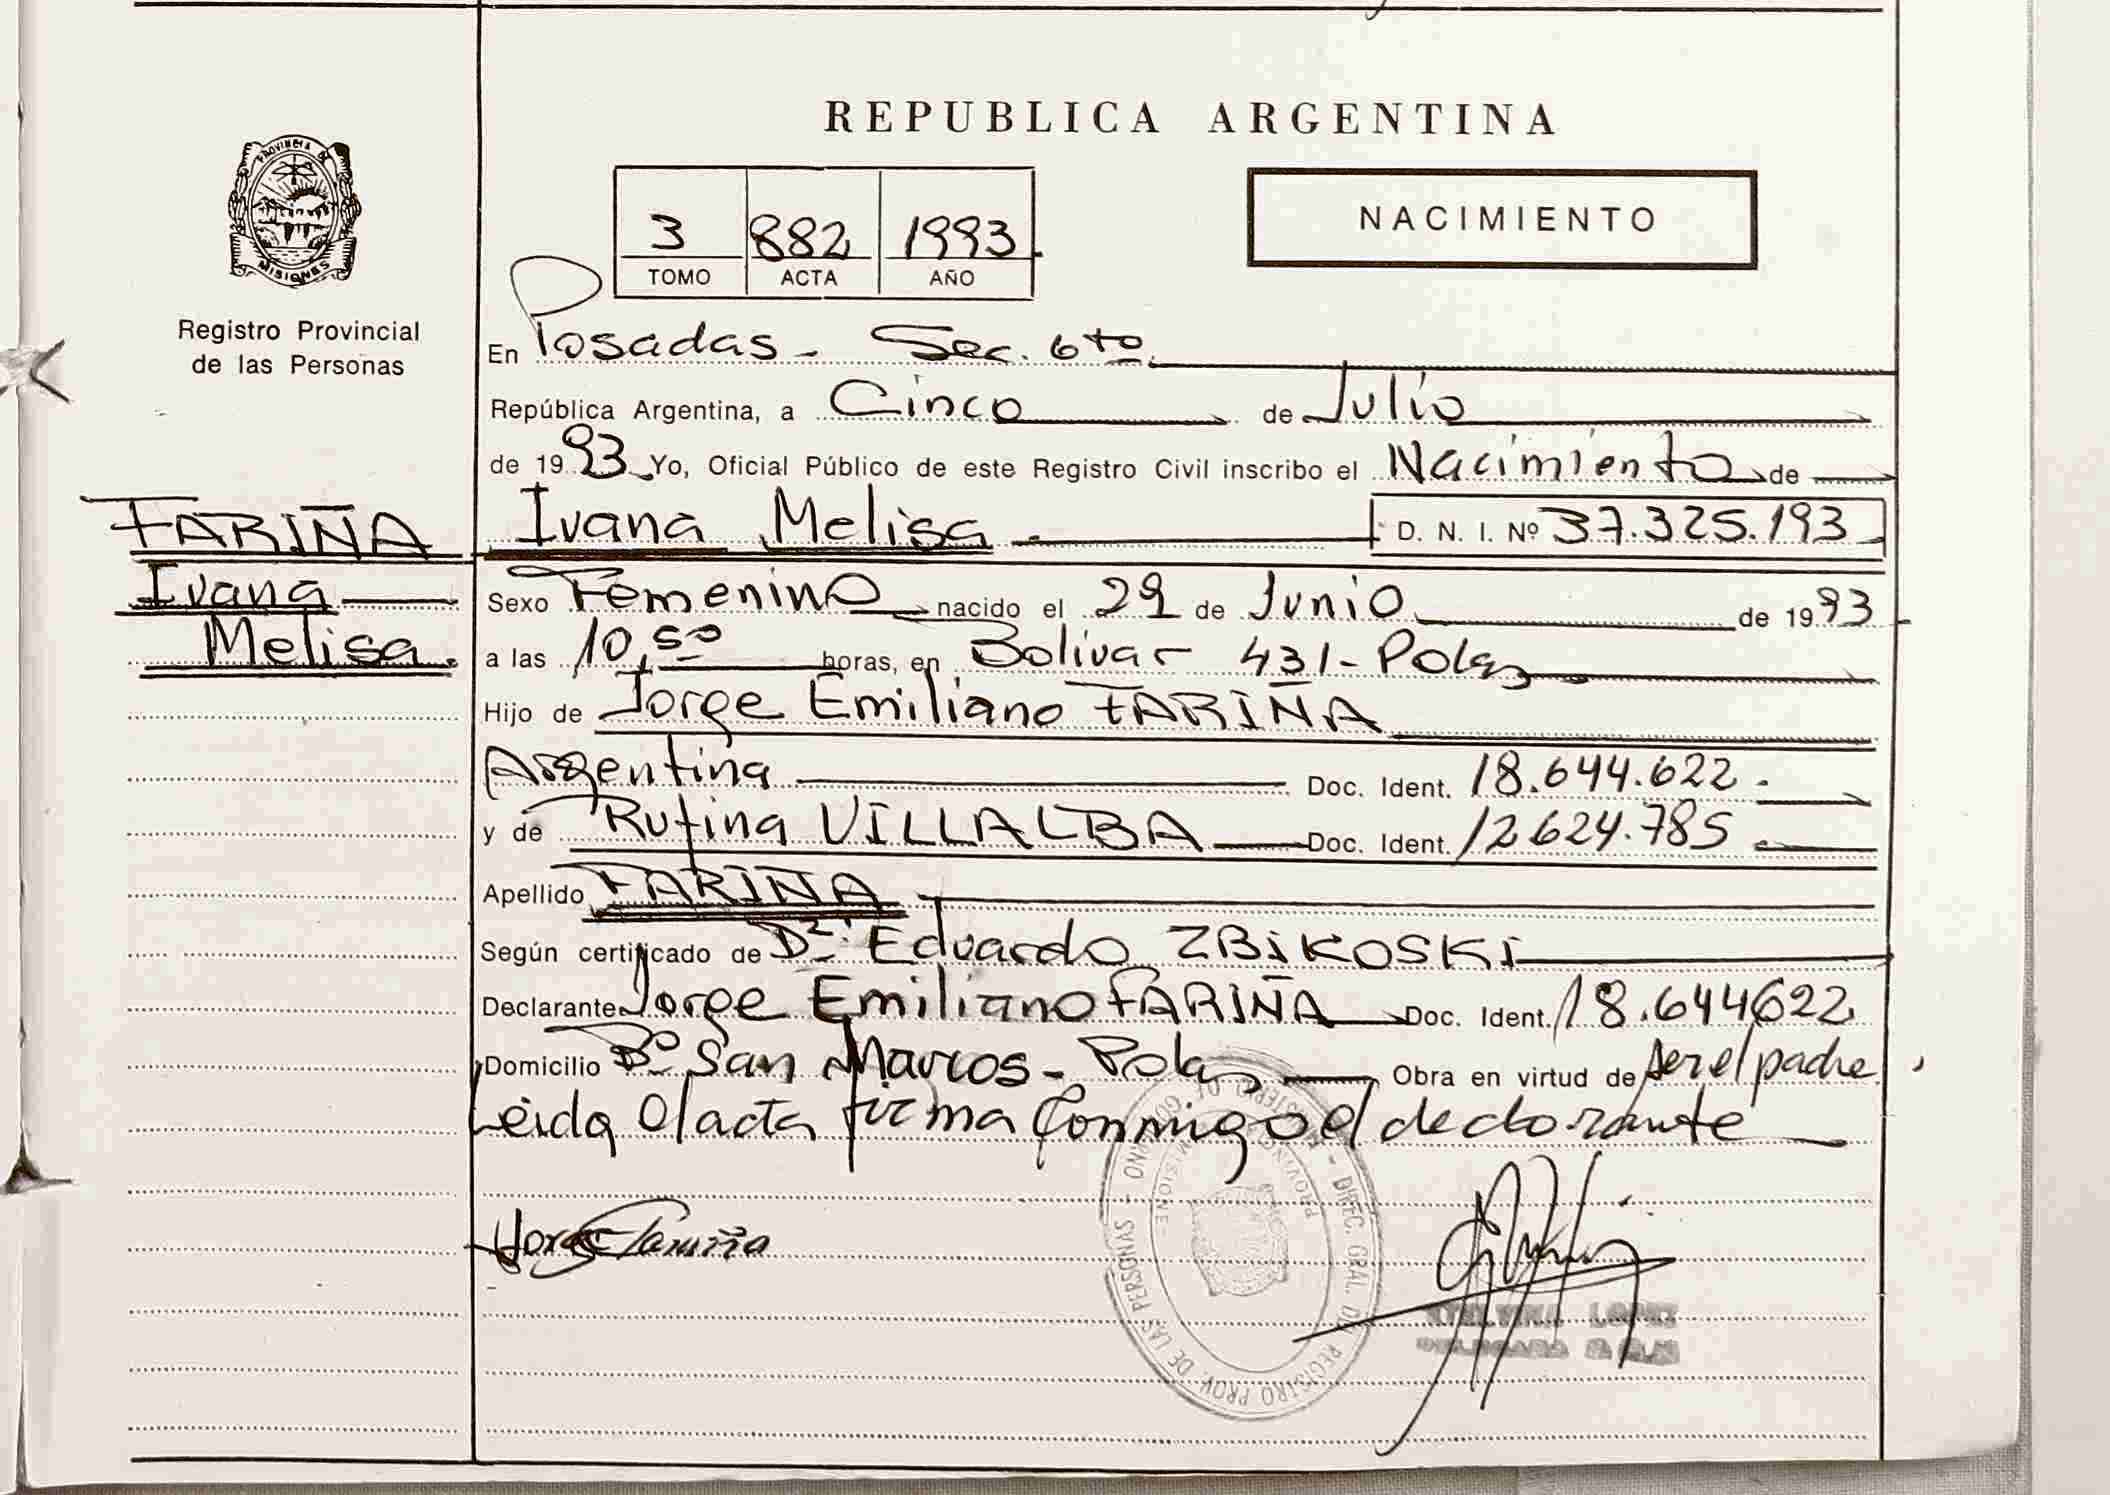 REPUBLICA ARGENTINA
PROVINCIA DE
MISIONES
Registro Provincial
de las Personas
3 882 1993
TOMO ACTA AÑO
NACIMIENTO
En Posadas - Sec. 6to
República Argentina, a Cinco de Julio
de 1993 Yo, Oficial Público de este Registro Civil inscribo el Nacimiento de
FARIÑA
Ivana
Melisa.
Ivana Melisa D. N. I. Nº 37.325.193
Sexo Femenino nacido el 29 de Junio de 1993
a las 10,50 horas, en Bolivar 431 - Pdas
Hijo de Jorge Emiliano FARIÑA
Argentina Doc. Ident. 18.644.622.
y de Rufina VILLALBA Doc. Ident. 12624.785
Apellido FARIÑA
Según certificado de Dr. Eduardo ZBIKOSKI
Declarante Jorge Emiliano FARIÑA Doc. Ident. 18.644622
Domicilio Bº San Marcos - Pdas Obra en virtud de ser el padre
Leida el acta firma conmigo el declarante
Jorge Fariña
DIREC. GRAL. DEL REGISTRO PROV. DE LAS PERSONAS - MINISTERIO DE GOBIERNO
PROVINCIA MISIONES
LOPEZ
DELEGADA